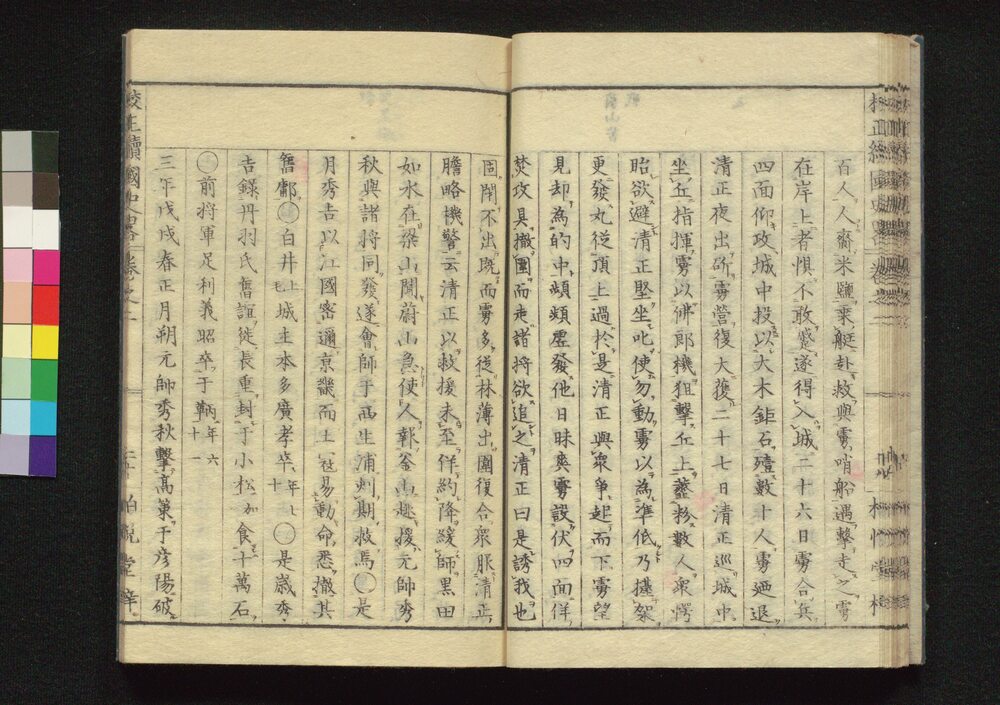 百人人齎米鹽乘艇赴救與虜哨船遇擊走之虜
在岸上者惧不敢蹙遂得入城二十六日虜合兵
四面仰攻城中投以大木鉅石殪數十人虜廼退
清正夜出斫虜營復大獲二十七日清正巡城中
坐丘指揮虜以佛郎機狙擊丘上虀粉數人衆愕
眙欲避清正堅坐叱使勿動虜以為準低乃擡架
更發丸從頂上過於是清正與衆爭起而下虜望
見却為的中頻頻虛發他日昧爽虜設伏四面佯
焚攻具撤圍而走諸将欲追之清正曰是誘我也
固閉不出既而虜多從林薄出圍復合衆服清正
膽略機警云清正以救援未至佯約降緩師黒田
如水在梁山聞蔚山急使人報釜山趣援元帥秀
秋與諸将同發遂會師于西生浦刻期救焉〇是
月秀吉以江國密邇京畿而土 易動命悉撤其
舊鄽〇白井上毛城主本多廣孝卒年七十〇是歳秀
吉錄丹羽氏舊誼徙長重封于小松加食十萬石
〇前将軍足利義昭卒于鞆年六十一
三年戊戌春正月朔元帥秀秋擊高策于彦陽破
校正續國史畧 卷之二
柏悦堂梓